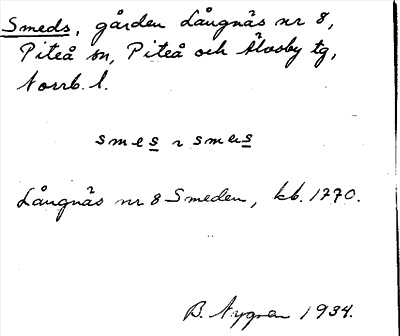 Smeds, gården Långnäs nr 8,
Piteå sn, Piteå och Älvsby tg,
Norrb. l.
smes ~ smeus
Långnäs nr 8 Smeden, kb. 1770.
B. Nygren 1934.